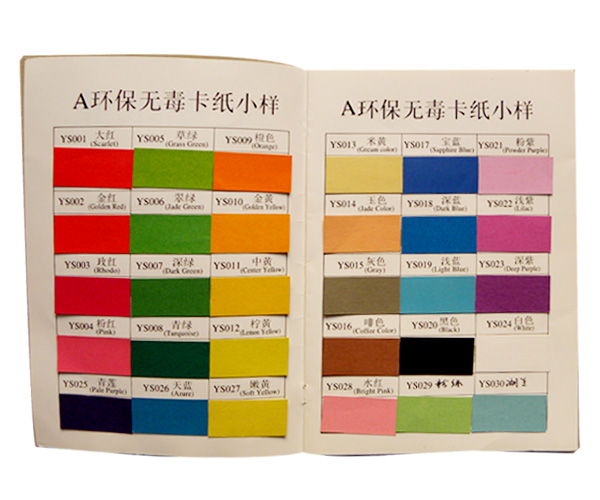 A环保无毒卡纸小样
YS001 大红 (Scarlet) YS005 草绿 (Grass Green) YS009 橙色 (Orange)
YS002 金红 (Golden Red) YS006 翠绿 (Jade Green) YS010 金黄 (Golden Yellow)
YS003 玫红 (Rhodo) YS007 深绿 (Dark Green) YS011 中黄 (Center Yellow)
YS004 粉红 (Pink) YS008 青绿 (Turquoise) YS012 柠黄 (Lemon Yellow)
YS025 青莲 (Pale Purple) YS026 天蓝 (Azure) YS027 嫩黄 (Soft Yellow)
A环保无毒卡纸小样
YS013 米黄 (Cream color) YS017 宝蓝 (Sapphire Blue) YS021 粉紫 (Powder Purple)
YS014 玉色 (Jade Color) YS018 深蓝 (Dark Blue) YS022 浅紫 (Lilac)
YS015 灰色 (Gray) YS019 浅蓝 (Light Blue) YS023 深紫 (Deep Purple)
YS016 啡色 (Coffee Color) YS020 黑色 (Black) YS024 白色 (White)
YS028 水红 (Bright Pink) YS029 粉绿 YS030